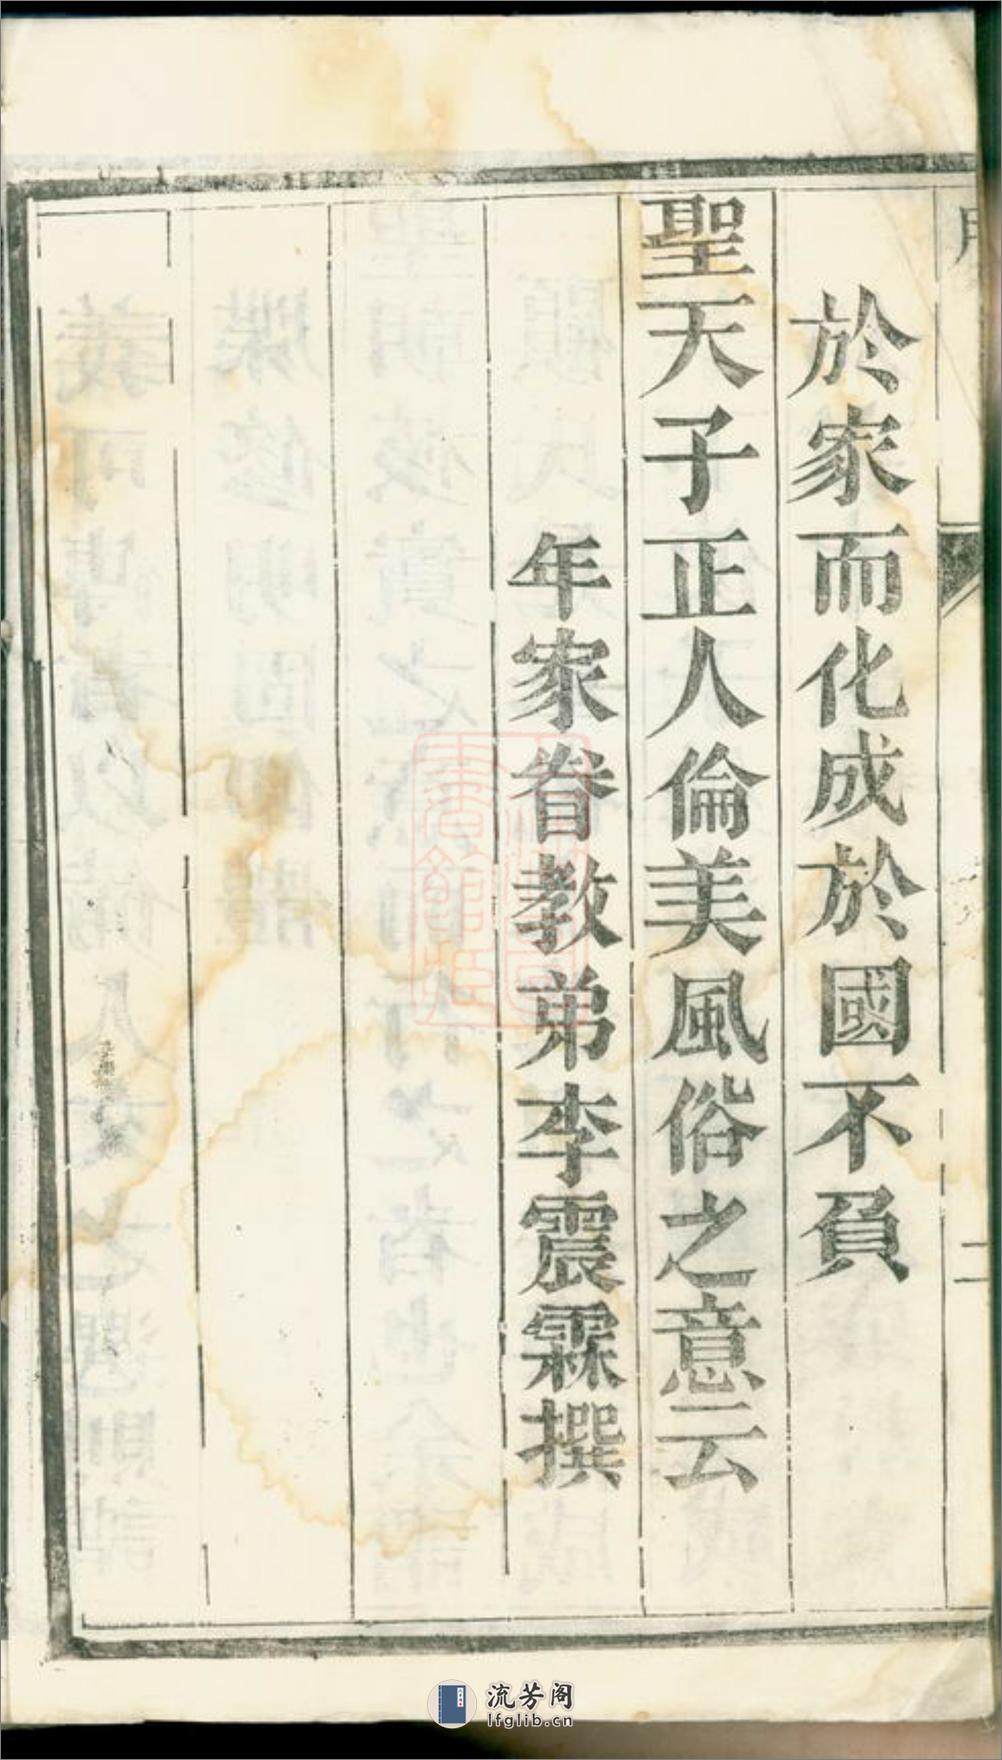 於家而化成於國不負
聖天子正人倫美風俗之意云
年家眷教弟李震霖撰
二
流芳阁
lfglib.cn